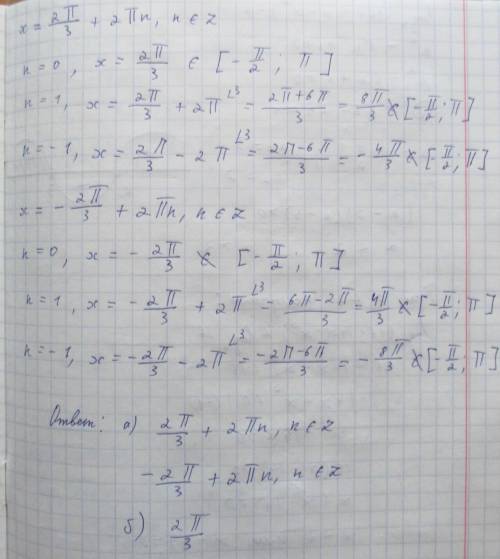 x = 2π/3 + 2πn, n ∈ Z
n = 0, x = 2π/3 ∈ [-π/2; π]
n = 1, x = 2π/3 + 2π^{L3} = (2π+6π)/3 = 8π/3 ∉ [-π/2; π]
n = -1, x = 2π/3 - 2π^{L3} = (2π-6π)/3 = -4π/3 ∉ [π/2; π]
x = -2π/3 + 2πn, n ∈ Z
n = 0, x = -2π/3 ∉ [-π/2; π]
n = 1, x = -2π/3 + 2π^{L3} = (6π-2π)/3 = 4π/3 ∉ [-π/2; π]
n = -1, x = -2π/3 - 2π^{L3} = (-2π-6π)/3 = -8π/3 ∉ [-π/2; π]
Ответ: а) 2π/3 + 2πn, n ∈ Z
-2π/3 + 2πn, n ∈ Z
б) 2π/3